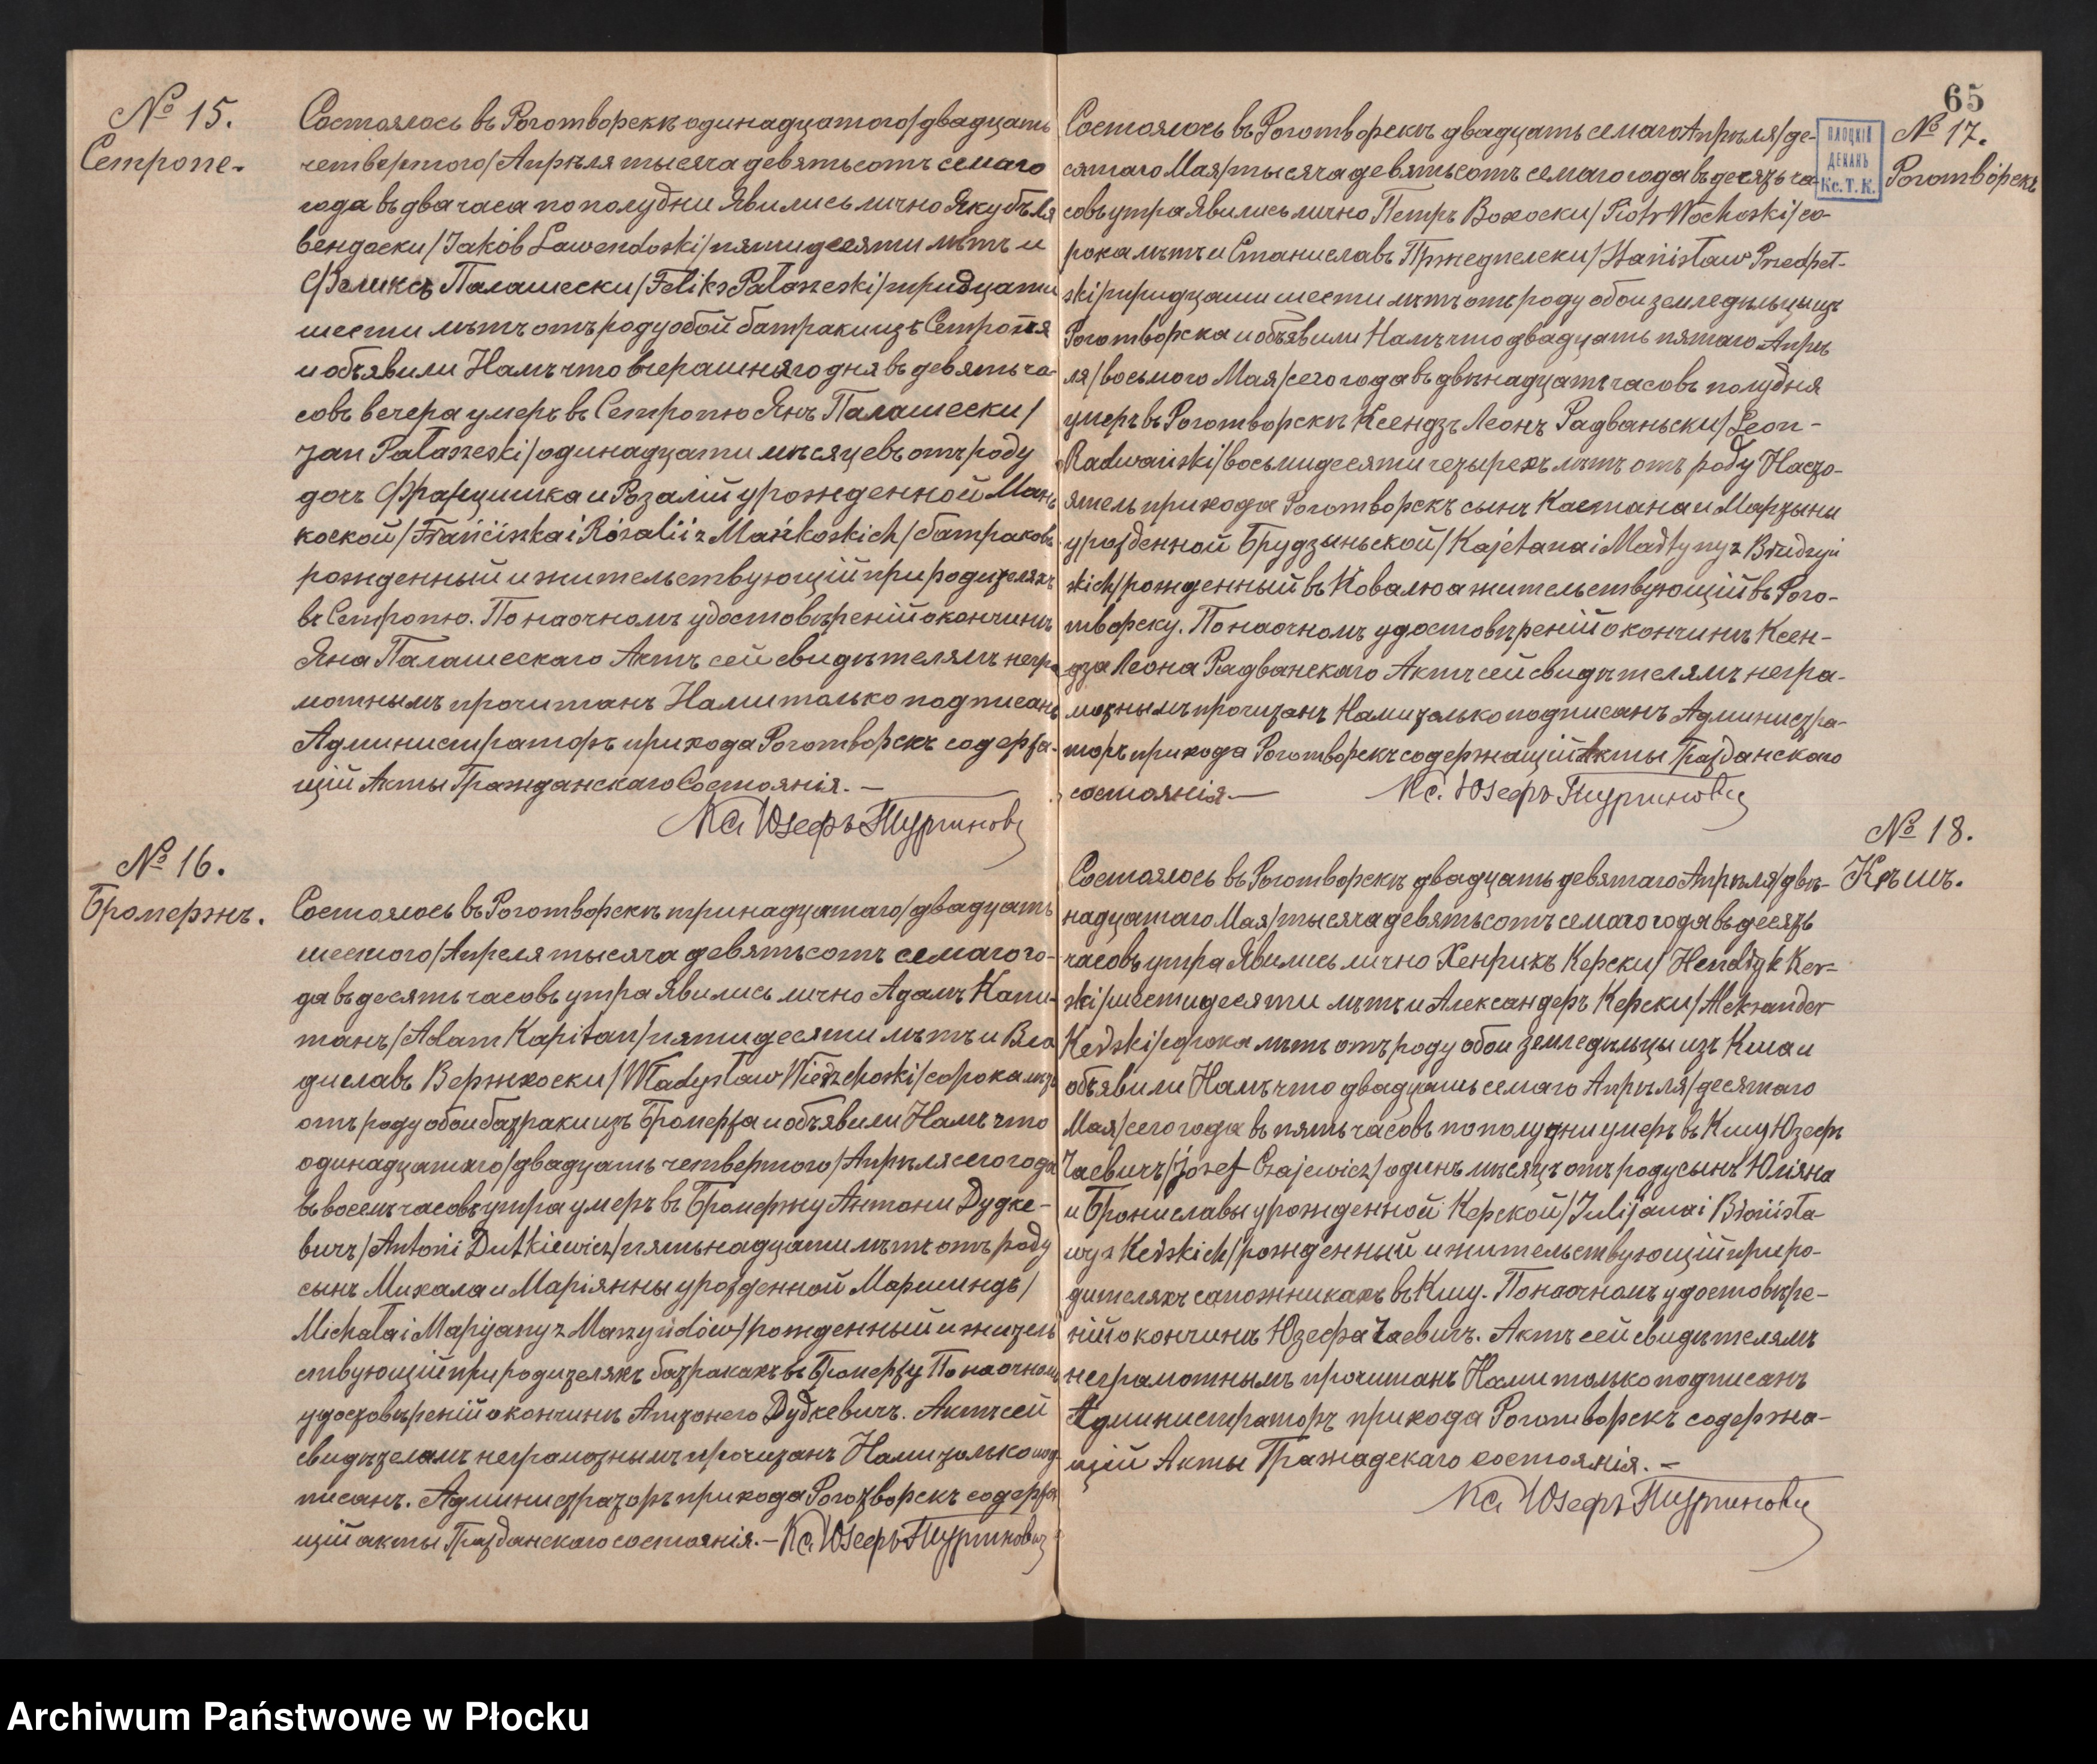 № 15.
Сетропе.
Состоялось въ Роготворскѣ одинадцатого/двадцать
четвертого/Апрѣля тысяча девятьсотъ семаго
года въ два часа по полудни Явились лично Якубъ Ля
вендоски/Jakób Lawendoski/пятидесяти лѣтъ и
Феликсъ Палашески/Feliks Pałaszeski/тридцати
шести лѣтъ отъ роду обой батраки изъ Сетропя
и объявили Намъ что вчерашняго дня въ девять ча-
совъ вечера умеръ въ Сетропю Янъ Палашески/
Jan Pałaszeski/одинадцати мѣсяцевъ отъ роду
дочъ Францишка и Розалiй урожденной Мань
коской/Franciszka i Rozalii z Mańkoskich/батраковъ
рожденный и жительствующiй при родителяхъ
въ Сетропю. По наочномъ удостовѣренiй о кончинѣ
Яна Палашескаго Актъ сей свидѣтелямъ негра
мотнымъ прочитанъ Нами только подписанъ
Администраторъ прихода Роготворскъ содержа-
щiй Акты Гражданскаго Состоянiя. —
Кс. Юзефъ Турчиновъ
№ 16.
Бромержъ.
Состоялось въ Роготворскѣ тринадцатаго/двадцать
шестого/Апреля тысяча девятьсотъ семаго го-
да въ десять часовъ утра Явились лично Адамъ Капи-
танъ/Adam Kapitan/пятидесяти лѣтъ и Вла
диславъ Вержхоски/Władysław Wierzchoski/сорока лѣтъ
отъ роду обои батраки изъ Бромержа и объявили Намъ что
одинадцатаго/двадцать четвертого/Апрѣля сего года
въ восемъ часовъ утра умеръ въ Бромержу Антони Дудке-
вичъ/Antoni Dutkiewicz/пятьнадцати лѣтъ отъ роду
сынъ Михала и Марiянны урожденной Маршиндъ/
Michała i Maryanny z Marszyndów/рожденный и житель
ствующiй при родителяхъ батракахъ въ Бромержу По наочномъ
удостовѣренiй о кончинѣ Антонего Дудкевичъ. Актъ сей
свидѣтелямъ неграмотнымъ прочитанъ Нами только под-
писанъ. Администраторъ прихода Роготворскъ содержа
щiй акты Гражданскаго состоянiя. — Кс. Юзефъ Турчиновъ
65
ПЛОЦКIЙ
ДЕКАНЪ
Кс. Т. К.
№ 17.
Роготворскъ
Состоялось въ Роготворскѣ двадцать семаго Апрѣля/де-
сятаго Мая/тысяча девятьсотъ семаго года въ десять ча-
совъ утра Явились лично Петръ Вохоски/Piotr Wochoski/со-
рока лѣтъ и Станиславъ Пржедпелски/Stanisław Przedpeł-
ski/тридцати шести лѣтъ отъ роду обои земледѣльцы изъ
Роготворска и объявили Намъ что двадцать пятаго Апрѣ
ля/восьмого Мая/сего года въ двѣнадцать часовъ полудня
умеръ въ Роготворскѣ Ксендзъ Леонъ Радваньски/Leon-
Radwański/восьмидесяти четырехъ лѣтъ отъ роду Насто-
ятель прихода Роготворскъ сынъ Каетана и Марцыны
урожденной Брудзыньской/Kajetana i Martyny z Brudzyń
skich/рожденный въ Ковалю а жительствующiй въ Рого-
творску. По наочномъ удостовѣренiй о кончинѣ Ксен-
дза Леона Радванскаго Актъ сей свидѣтелямъ негра-
мотнымъ прочитанъ Нами только подписанъ Администра-
торъ прихода Роготворскъ содержащiй Акты Гражданскаго
состоянiя. —
Кс. Юзефъ Турчиновъ
№ 18.
Кѣшъ.
Состоялось въ Роготворскѣ двадцать девятаго Апрѣля/двѣ-
надцатаго Мая/тысяча девятьсотъ семаго года въ десять
часовъ утра Явились лично Хенрикъ Керски/Hendryk Ker-
ski/шестидесяти лѣтъ и Александеръ Керски/Aleksander
Kerski/сорока лѣтъ отъ роду обои земледѣльцы изъ Кша и
объявили Намъ что двадцать семаго Апрѣля/десятаго
Мая/сего года въ пять часовъ по полудни умеръ въ Кшу Юзефъ
Чаевичъ/Józef Czajewicz/одинъ мѣсяцъ отъ роду сынъ Юлiяна
и Брониславы урожденной Керской/Julijana i Bronisła-
wy z Kerskich/рожденный и жительствующiй при ро-
дителяхъ сапожникахъ въ Кшу. По наочномъ удостовѣре-
нiй о кончинѣ Юзефа Чаевичъ. Актъ сей свидѣтелямъ
неграмотнымъ прочитанъ Нами только подписанъ
Администраторъ прихода Роготворскъ содержа-
щiй Акты Гражадскаго состоянiя. —
Кс. Юзефъ Турчиновъ
Archiwum Państwowe w Płocku